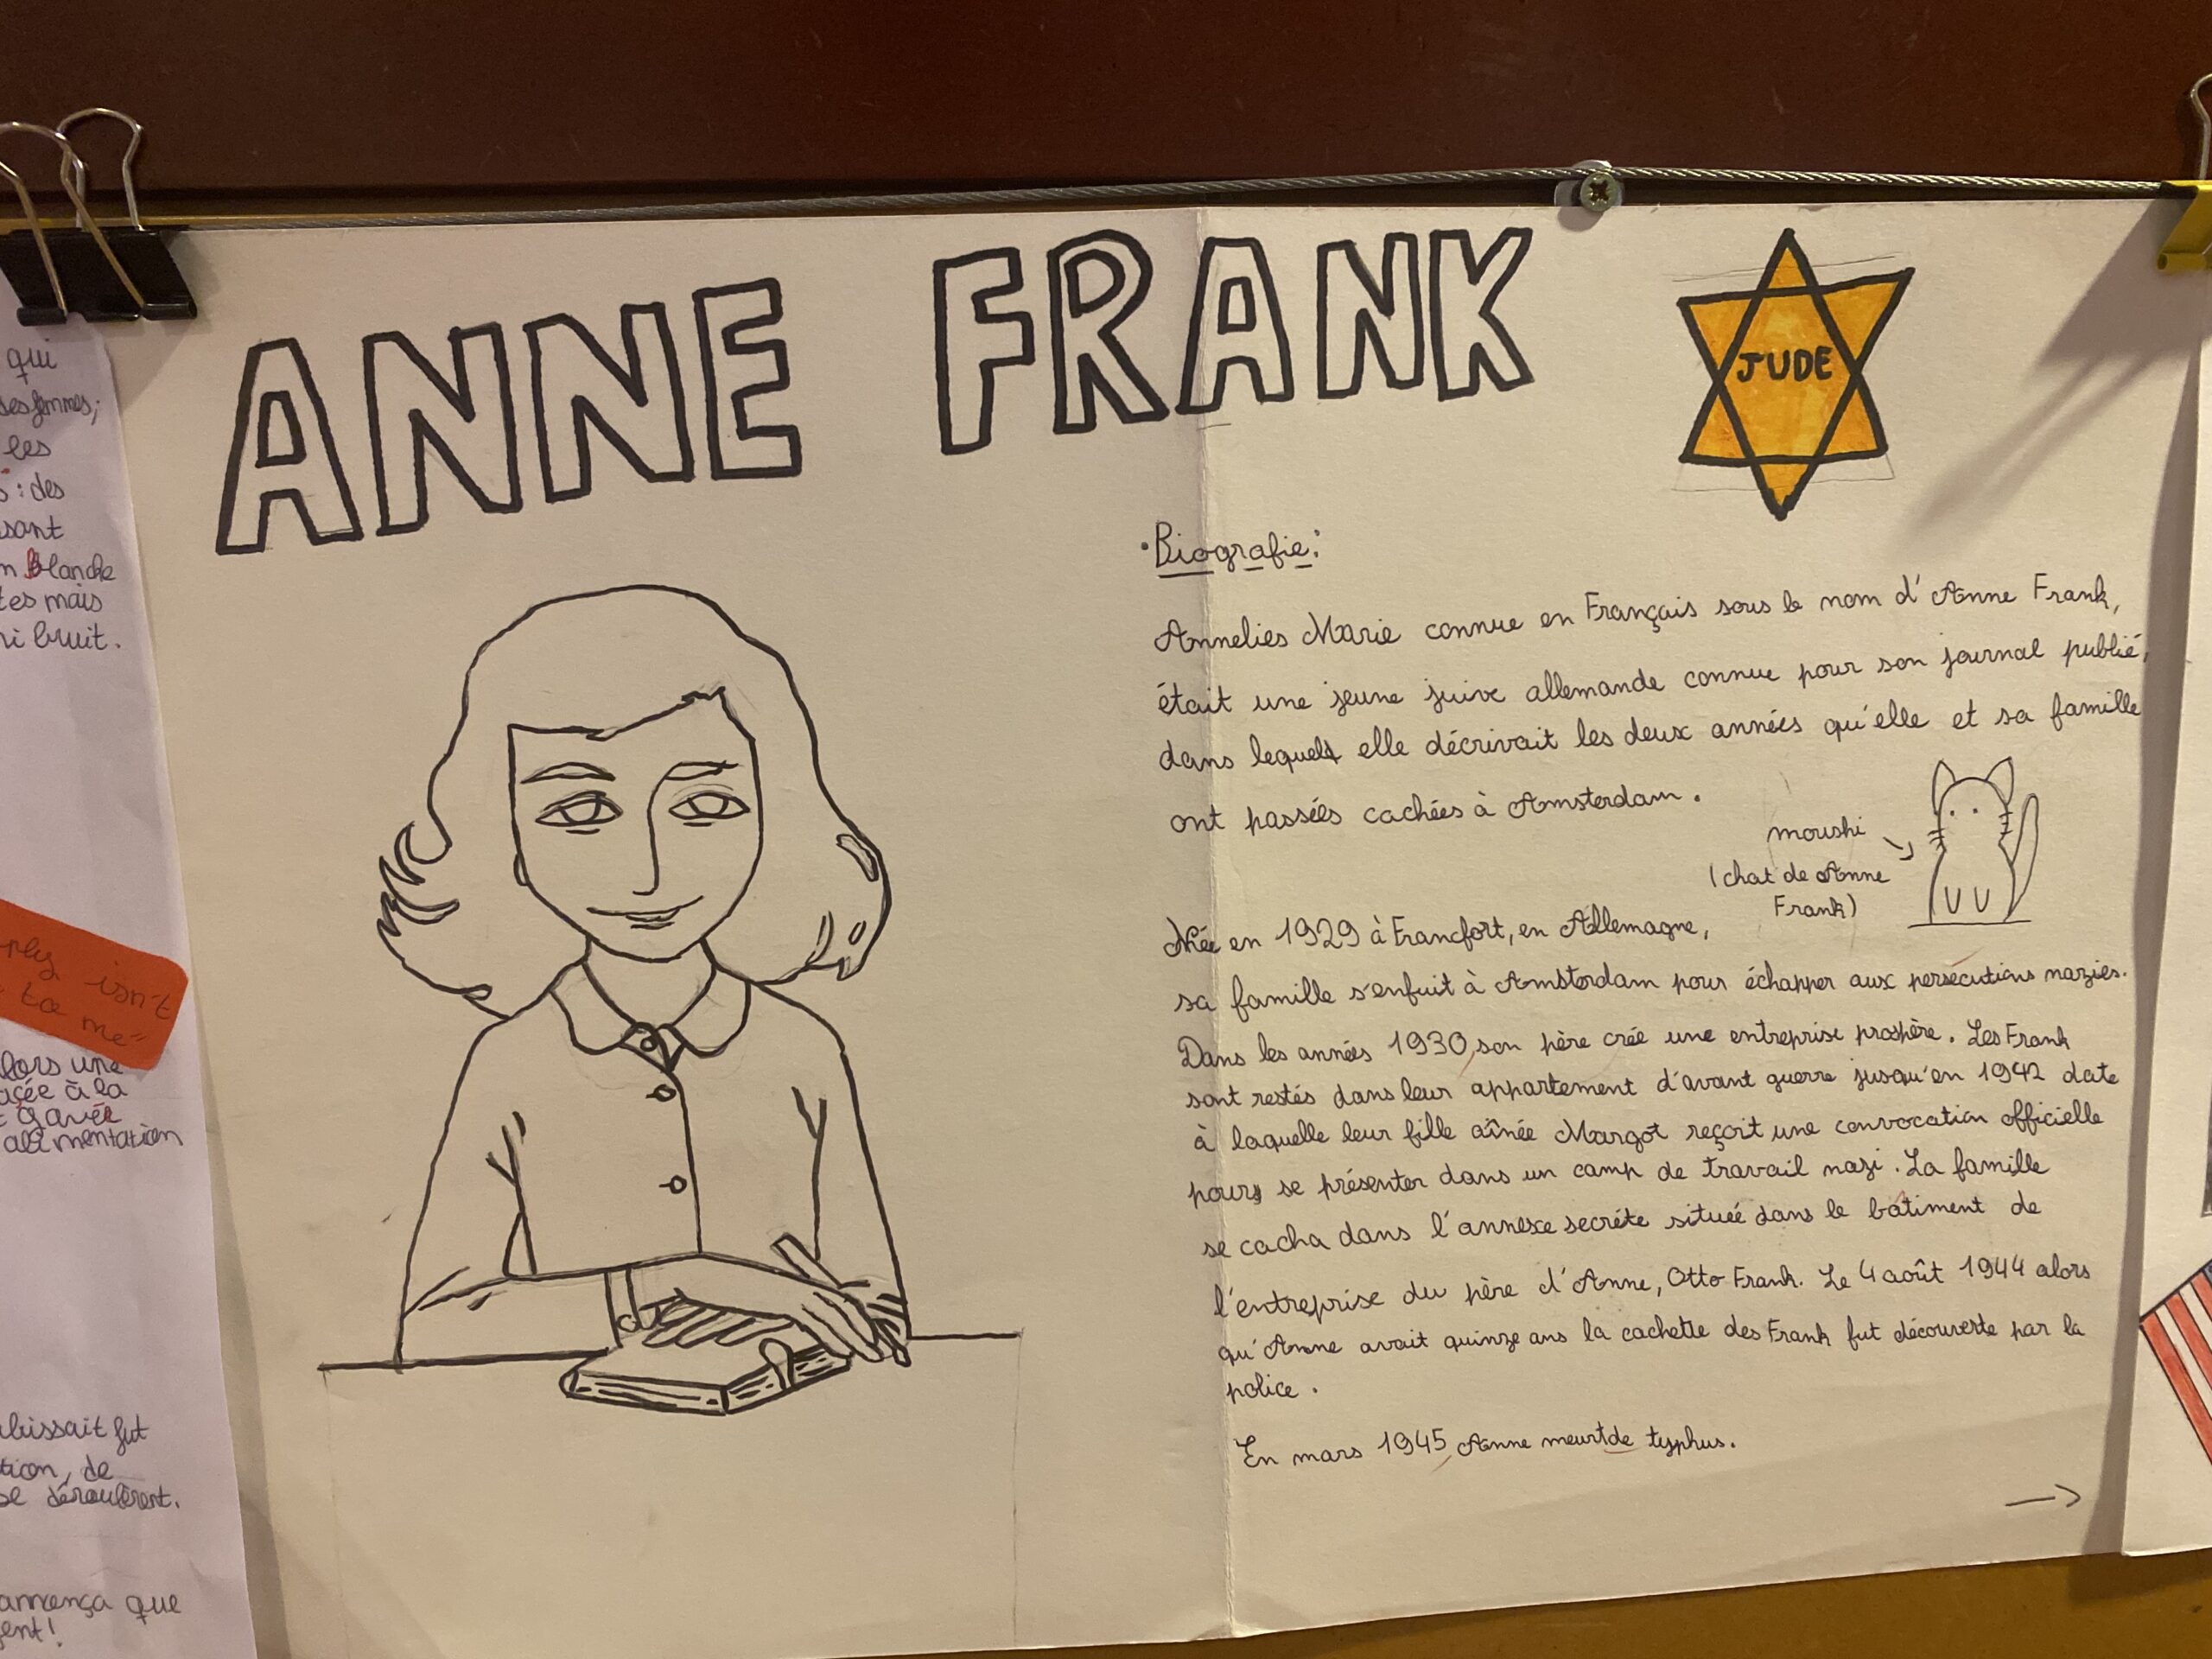 ANNE FRANK
JUDE
• Biografie:
Annelies Marie connue en Français sous le nom d'Anne Frank,
était une jeune juive allemande connue pour son journal publié,
dans lequel elle décrivait les deux années qu'elle et sa famille
ont passées cachées à Amsterdam.
moushi
(chat de Anne
Frank)
Née en 1929 à Francfort, en Allemagne,
sa famille s'enfuit à Amsterdam pour échapper aux persécutions nazies.
Dans les années 1930, son père crée une entreprise prospère. Les Frank
sont restés dans leur appartement d'avant guerre jusqu'en 1942 date
à laquelle leur fille aînée Margot reçoit une convocation officielle
pour se présenter dans un camp de travail nazi. La famille
se cacha dans l'annexe secrète située dans le bâtiment de
l'entreprise du père d'Anne, Otto Frank. Le 4 août 1944 alors
qu'Anne avait quinze ans la cachette des Frank fut découverte par la
police.
En mars 1945, Anne meurt de typhus.
→
qui
des femmes;
les
: des
sant
blanche
mais
bruit.
isn't
to me"
alors une
à la
gavée
alimentation
fut
de
se déroulèrent.
que